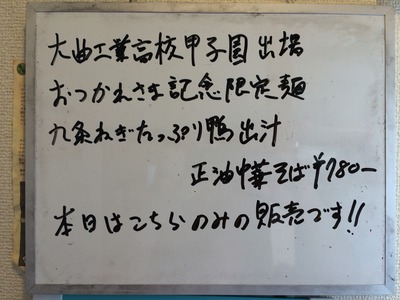 大曲工業高校甲子園出場
おつかれさま記念限定麺
九条ねぎたっぷり鴨出汁
正油中華そば¥780-
本日はこちらのみの販売です!!